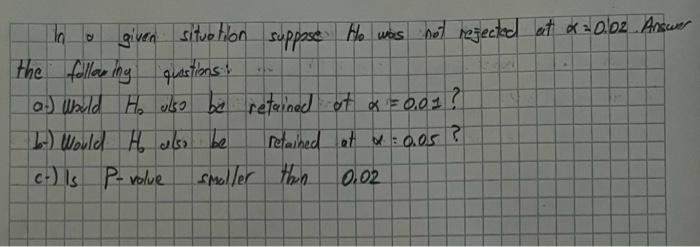 In a given situation suppose Ho was not rejected at α = 0.02. Answer
the following questions:
a-) Would Ho also be retained at α = 0.01?
b-) Would Ho also be retained at α = 0.05?
c-) Is P-value smaller then 0.02